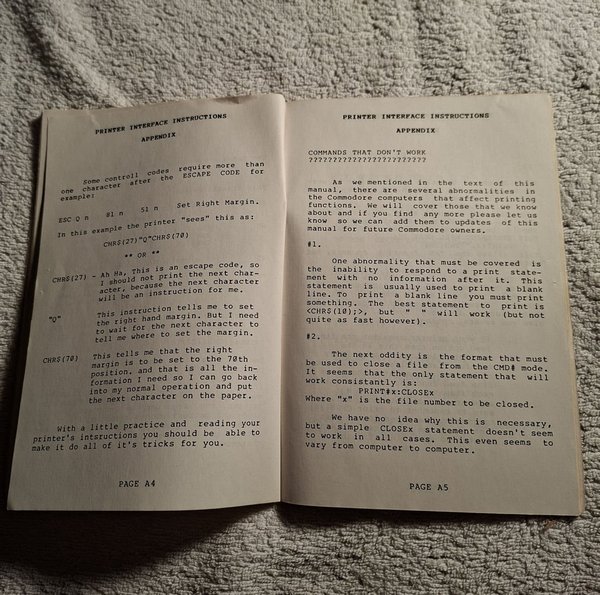 PRINTER INTERFACE INSTRUCTIONS
APPENDIX
Some controll codes require more than
one character after the ESCAPE CODE for
example:
ESC Q n 81 n 51 n Set Right Margin.
In this example the printer "sees" this as:
CHR$(27)"Q"CHR$(70)
** OR **
CHR$(27) - Ah Ha, This is an escape code, so
I should not print the next char-
acter, because the next character
will be an instruction for me.
"Q" This instruction tells me to set
the right hand margin. But I need
to wait for the next character to
tell me where to set the margin.
CHR$(70) This tells me that the right
margin is to be set to the 70th
position. and that is all the in-
formation I need so I can go back
into my normal operation and put
the next character on the paper.
With a little practice and reading your
printer's intsructions you should be able to
make it do all of it's tricks for you.
PAGE A4
PRINTER INTERFACE INSTRUCTIONS
APPENDIX
COMMANDS THAT DON'T WORK
????????????????????????
As we mentioned in the text of this
manual, there are several abnormalities in
the Commodore computers that affect printing
functions. We will cover those that we know
about and if you find any more please let us
know so we can add them to updates of this
manual for future Commodore owners.
#1.
One abnormality that must be covered is
the inability to respond to a print state-
ment with no information after it. This
statement is usually used to print a blank
line. To print a blank line you must print
something. The best statement to print is
<CHR$(10);>, but " " will work (but not
quite as fast however).
#2.
The next oddity is the format that must
be used to close a file from the CMD# mode.
It seems that the only statement that will
work consistantly is:
PRINT#x:CLOSEx
Where "x" is the file number to be closed.
We have no idea why this is necessary,
but a simple CLOSEx statement doesn't seem
to work in all cases. This even seems to
vary from computer to computer.
PAGE A5